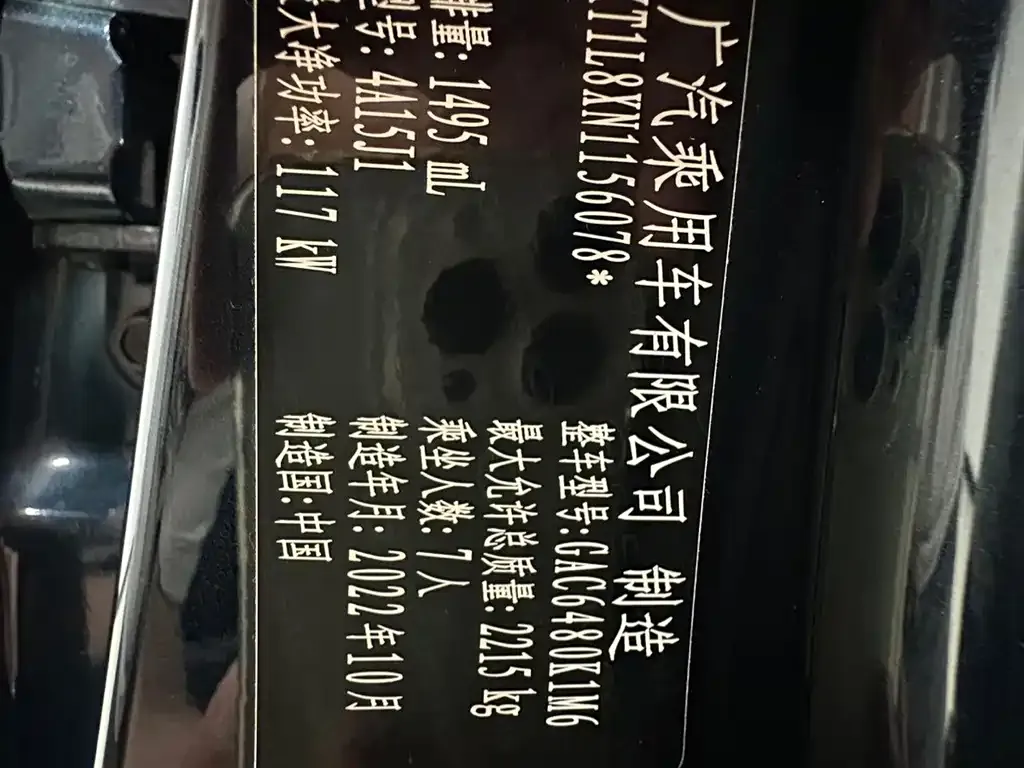 广汽乘用车有限公司 制造
T1L8XN1156078*
整车型号:GAC6480K1M6
最大允许总质量:2215kg
排量:1495 mL
乘坐人数:7人
型号:4A15J1
制造年月:2022年10月
最大净功率:117 kW
制造国:中国